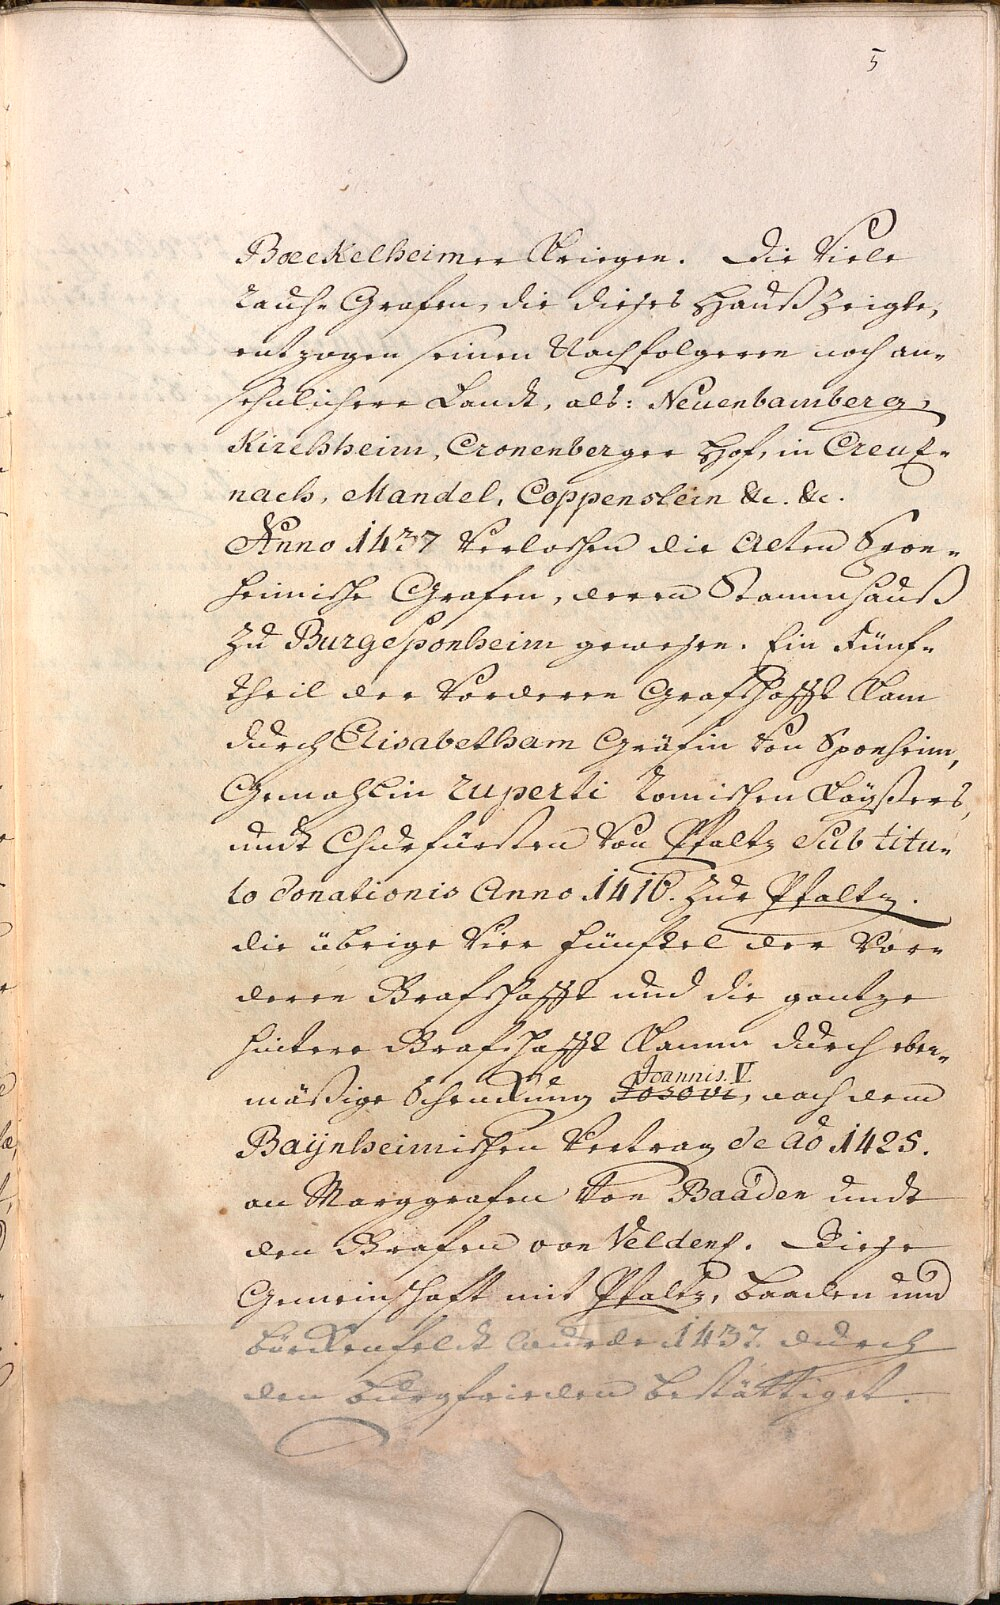 5
Bœckelheimer Kriegen. Die Viele
Rauh- Grafen, die dieses Hauß zeigte,
entzogen seinen Nachfolgeren noch an-
sehnlichere Landt, als: Neuenbamberg,
Kirchheim, Cronenberger Hof, in Creutz-
nach, Mandel, Coppenstein &c. &c.
Anno 1437 Verloschen die Alten Spon-
heimische Grafen, deren Stammhauß
zu Burgesponheim gewesen. Ein Fünf-
theil der Vorderen Grafschafft Kam
durch Elisabetham Gräfin von Sponheim,
Gemahlin Ruperti Romischen Kaÿßers,
undt Churfürsten von Pfaltz Sub titu-
lo donationis Anno 1416. zur Pfaltz.
die übrige Vier fünftel der Vor-
deren Grafschafft und die gantze
hintere Grafschafft Kamen durch eben-
mäßige Schenckung Joannis V, nach dem
Baÿnheimischen Vertrag de Ao 1425.
an Marggrafen Von Baaden undt
den Grafen von Veldentz. Diese
Gemeinschaft mit Pfaltz, Baaden und
Birckenfeldt wurde 1437. durch
den Burgfrieden bestättiget.